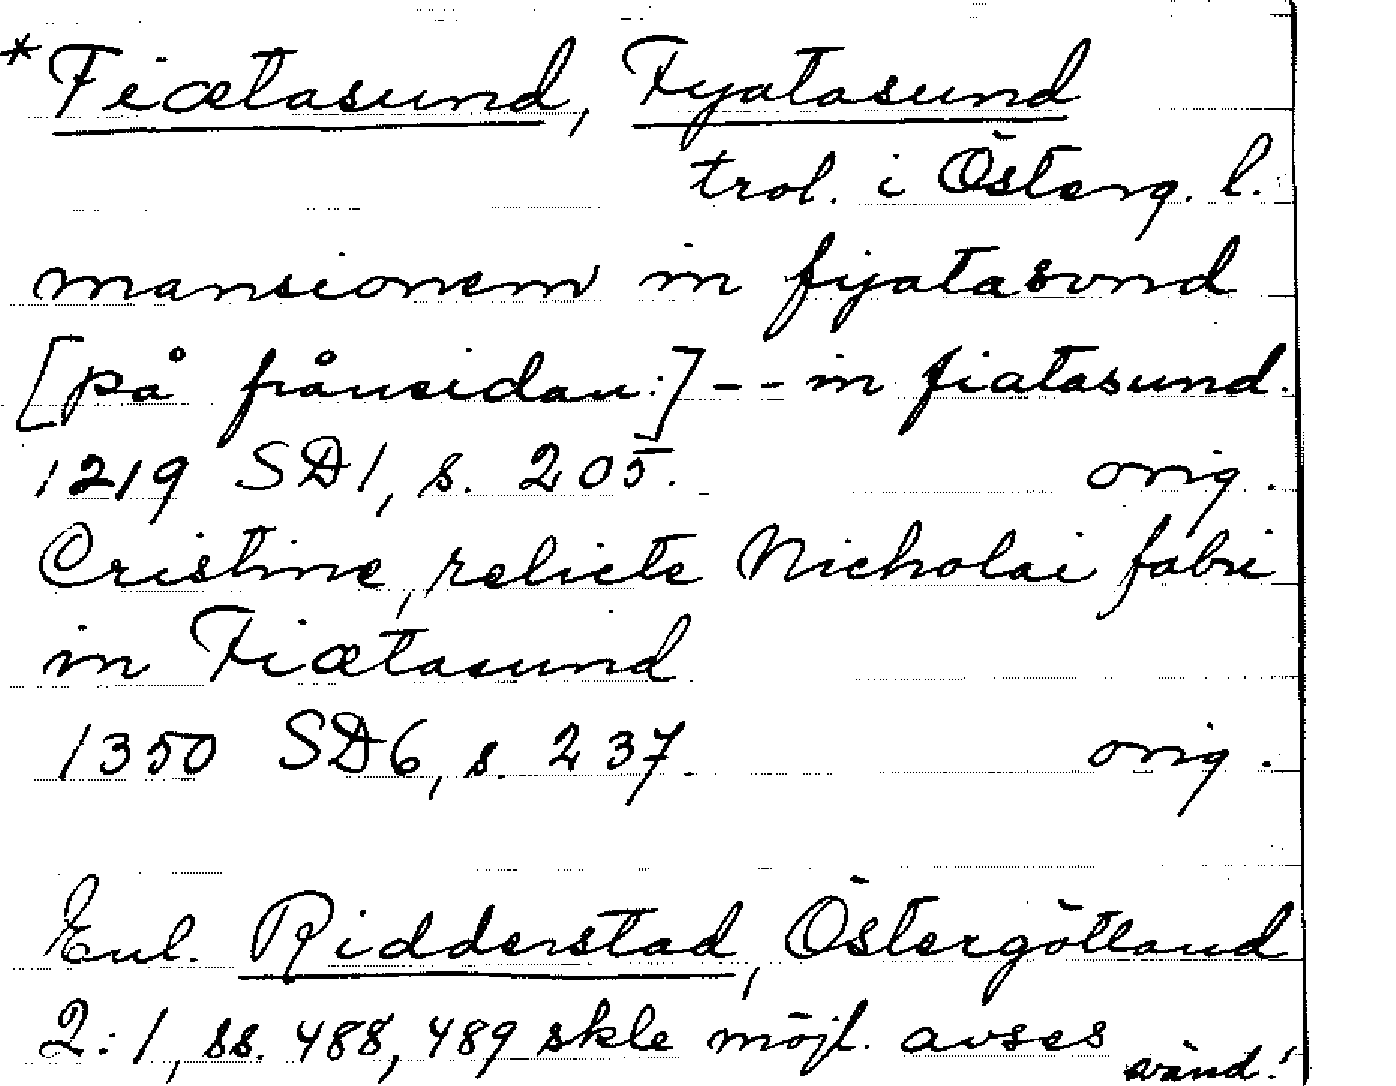 *Fiætasund, Fyatasund
trol. i Österg. l.
mansionem in fyatasvnd
[på frånsidan:] -- in fiatasund.
1219 SD1, s. 205. orig.
Cristine, relicte Nicholai fabri
in Fiætasund
1350 SD6, s. 237. orig.
Enl. Ridderstad, Östergötland
2:1, ss. 488, 489 skle möjl. avses
vänd!